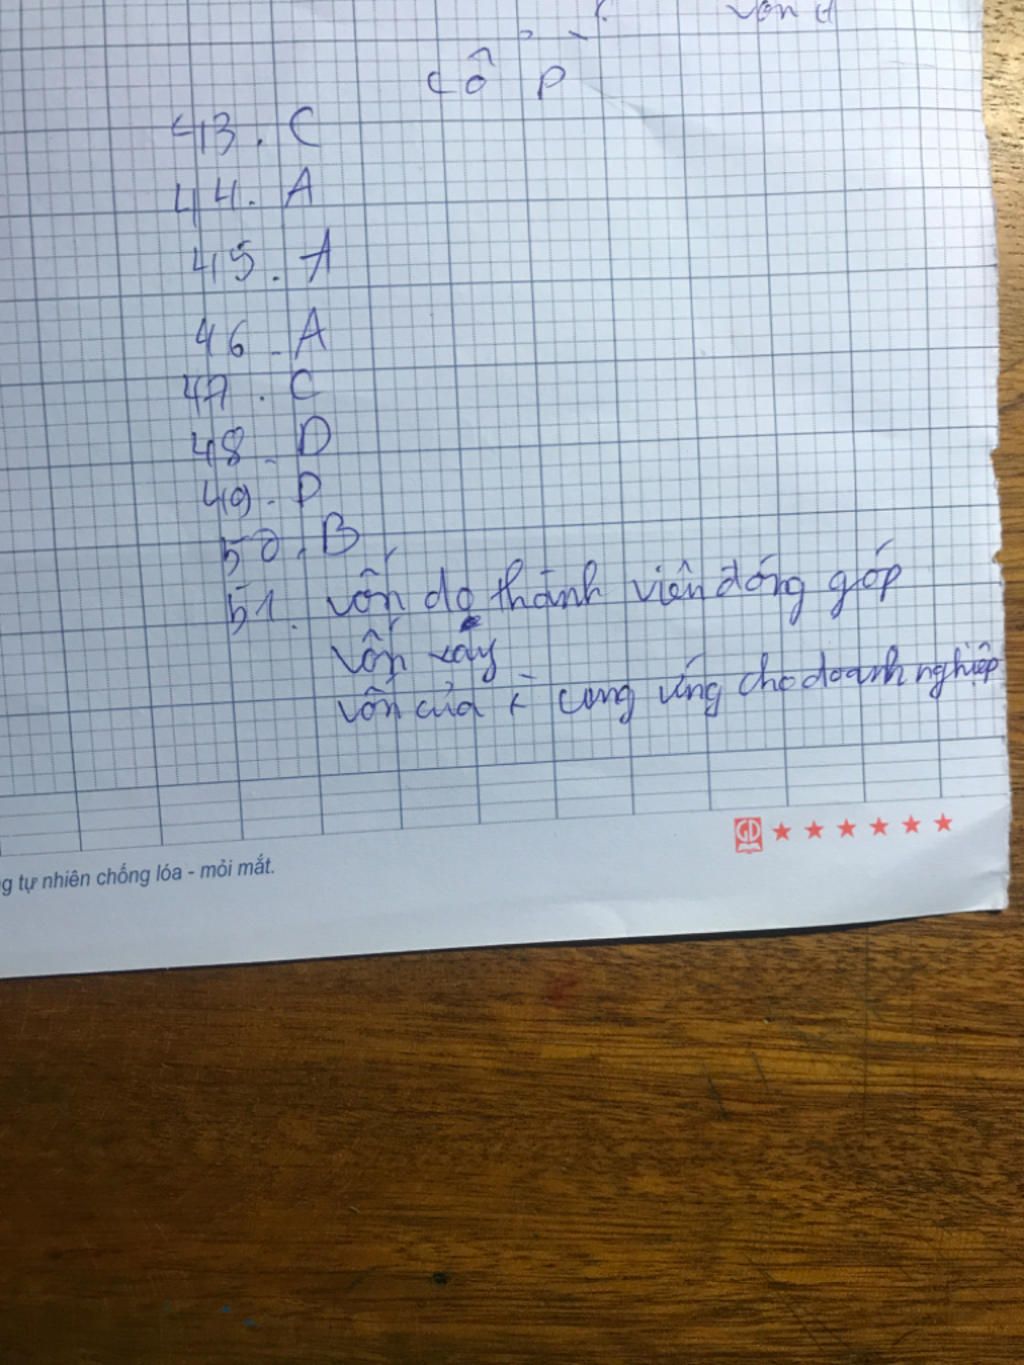 cổ p
43. C
44. A
45. A
46. A
47. C
48. D
49. D
50. B
51. vốn do thành viên đóng góp
vốn vay
vốn của cung ứng cho doanh nghiệp
GD
g tự nhiên chống lóa - mỏi mắt.